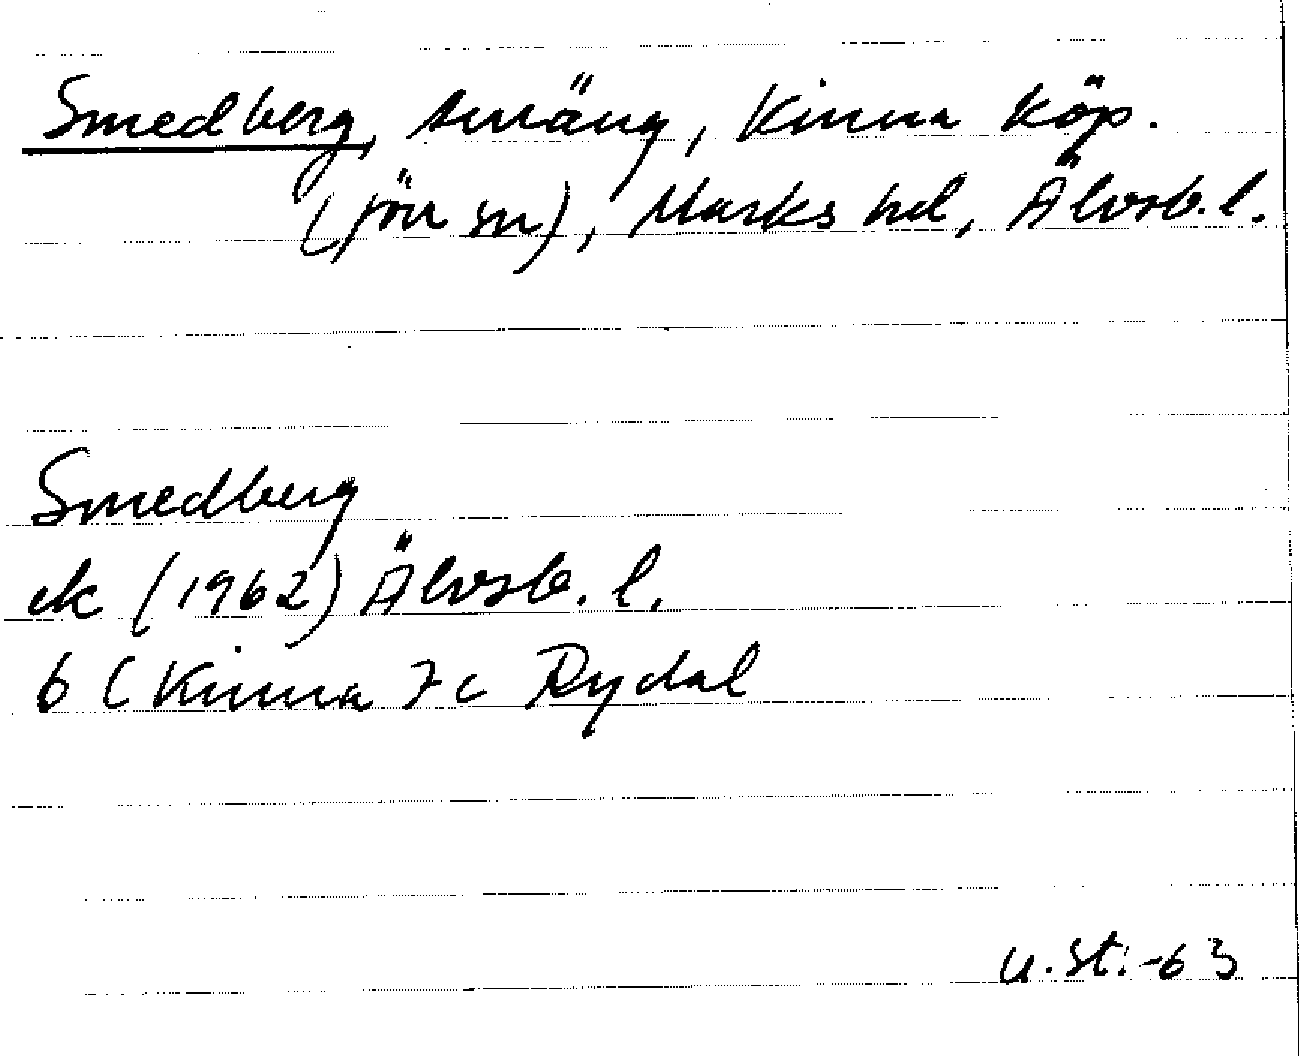 Smedberg, terräng, Kinna köp.
(förr sn), Marks hd, Älvsb. l.
Smedberg
ek (1962) Älvsb. l.
6 C Kinna 7 c Rydal
u. St. -63